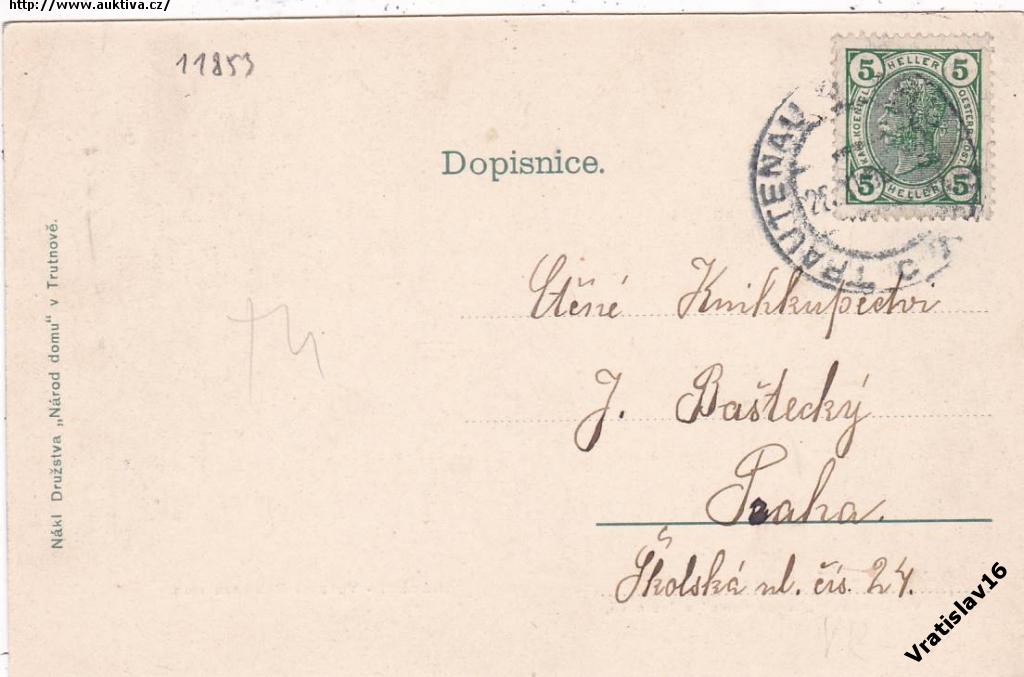 http://www.auktiva.cz/
11853
5 HELLER 5
5 HELLER 5
TRAUTENAU
Dopisnice.
Ctěné Knihkupectvi
J. Baštecký
Praha.
Školská ul. čís. 24.
Nákl Družstva „Národ domu" v Trutnově.
Vratislav16